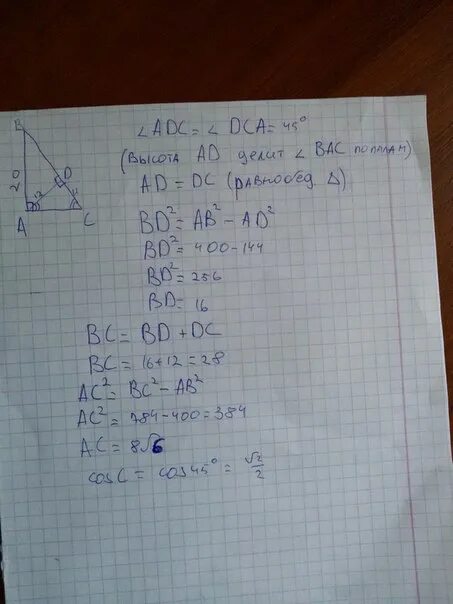 B
20
12
D
A
C
∠ADC = ∠DCA = 45°
(Высота AD делит ∠ BAC пополам)
AD = DC (равнобед Δ)
BD² = AB² - AD²
BD² = 400 - 144
BD² = 256
BD = 16
BC = BD + DC
BC = 16 + 12 = 28
AC² = BC² - AB²
AC² = 784 - 400 = 384
AC = 8√6
cos C = cos 45° = √2/2